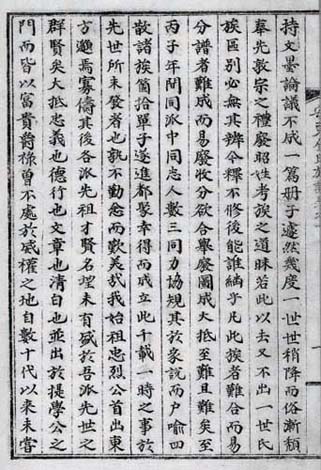 持文墨論議不成一篇册子遽然幾度一世世稍降而俗漸頹
奉先敦宗之禮廢昭姓考族之道昧若此以去又不出一世氏
族區别必無其辨今釋不修後能誰綱乎凡此族者難合而易
分譜者難成而易廢收分欲合舉廢圖成大抵至難且難矣至
丙子年間同派中同志人數三同力協規其於家說而户喻四
散諸族箇拾單子遂進都聚幸得而成立此千載一時之事於
先世所未發者也孰不勤念而歎美哉我始祖忠烈公首出東
方邈焉寡儔其後各派先祖才賢名理未有盛於吾派先世之
群賢矣大抵忠義也德行也文章也清白也並出於提學公之
門而皆以富貴爵祿曾不處於威權之地自數十代以來未嘗